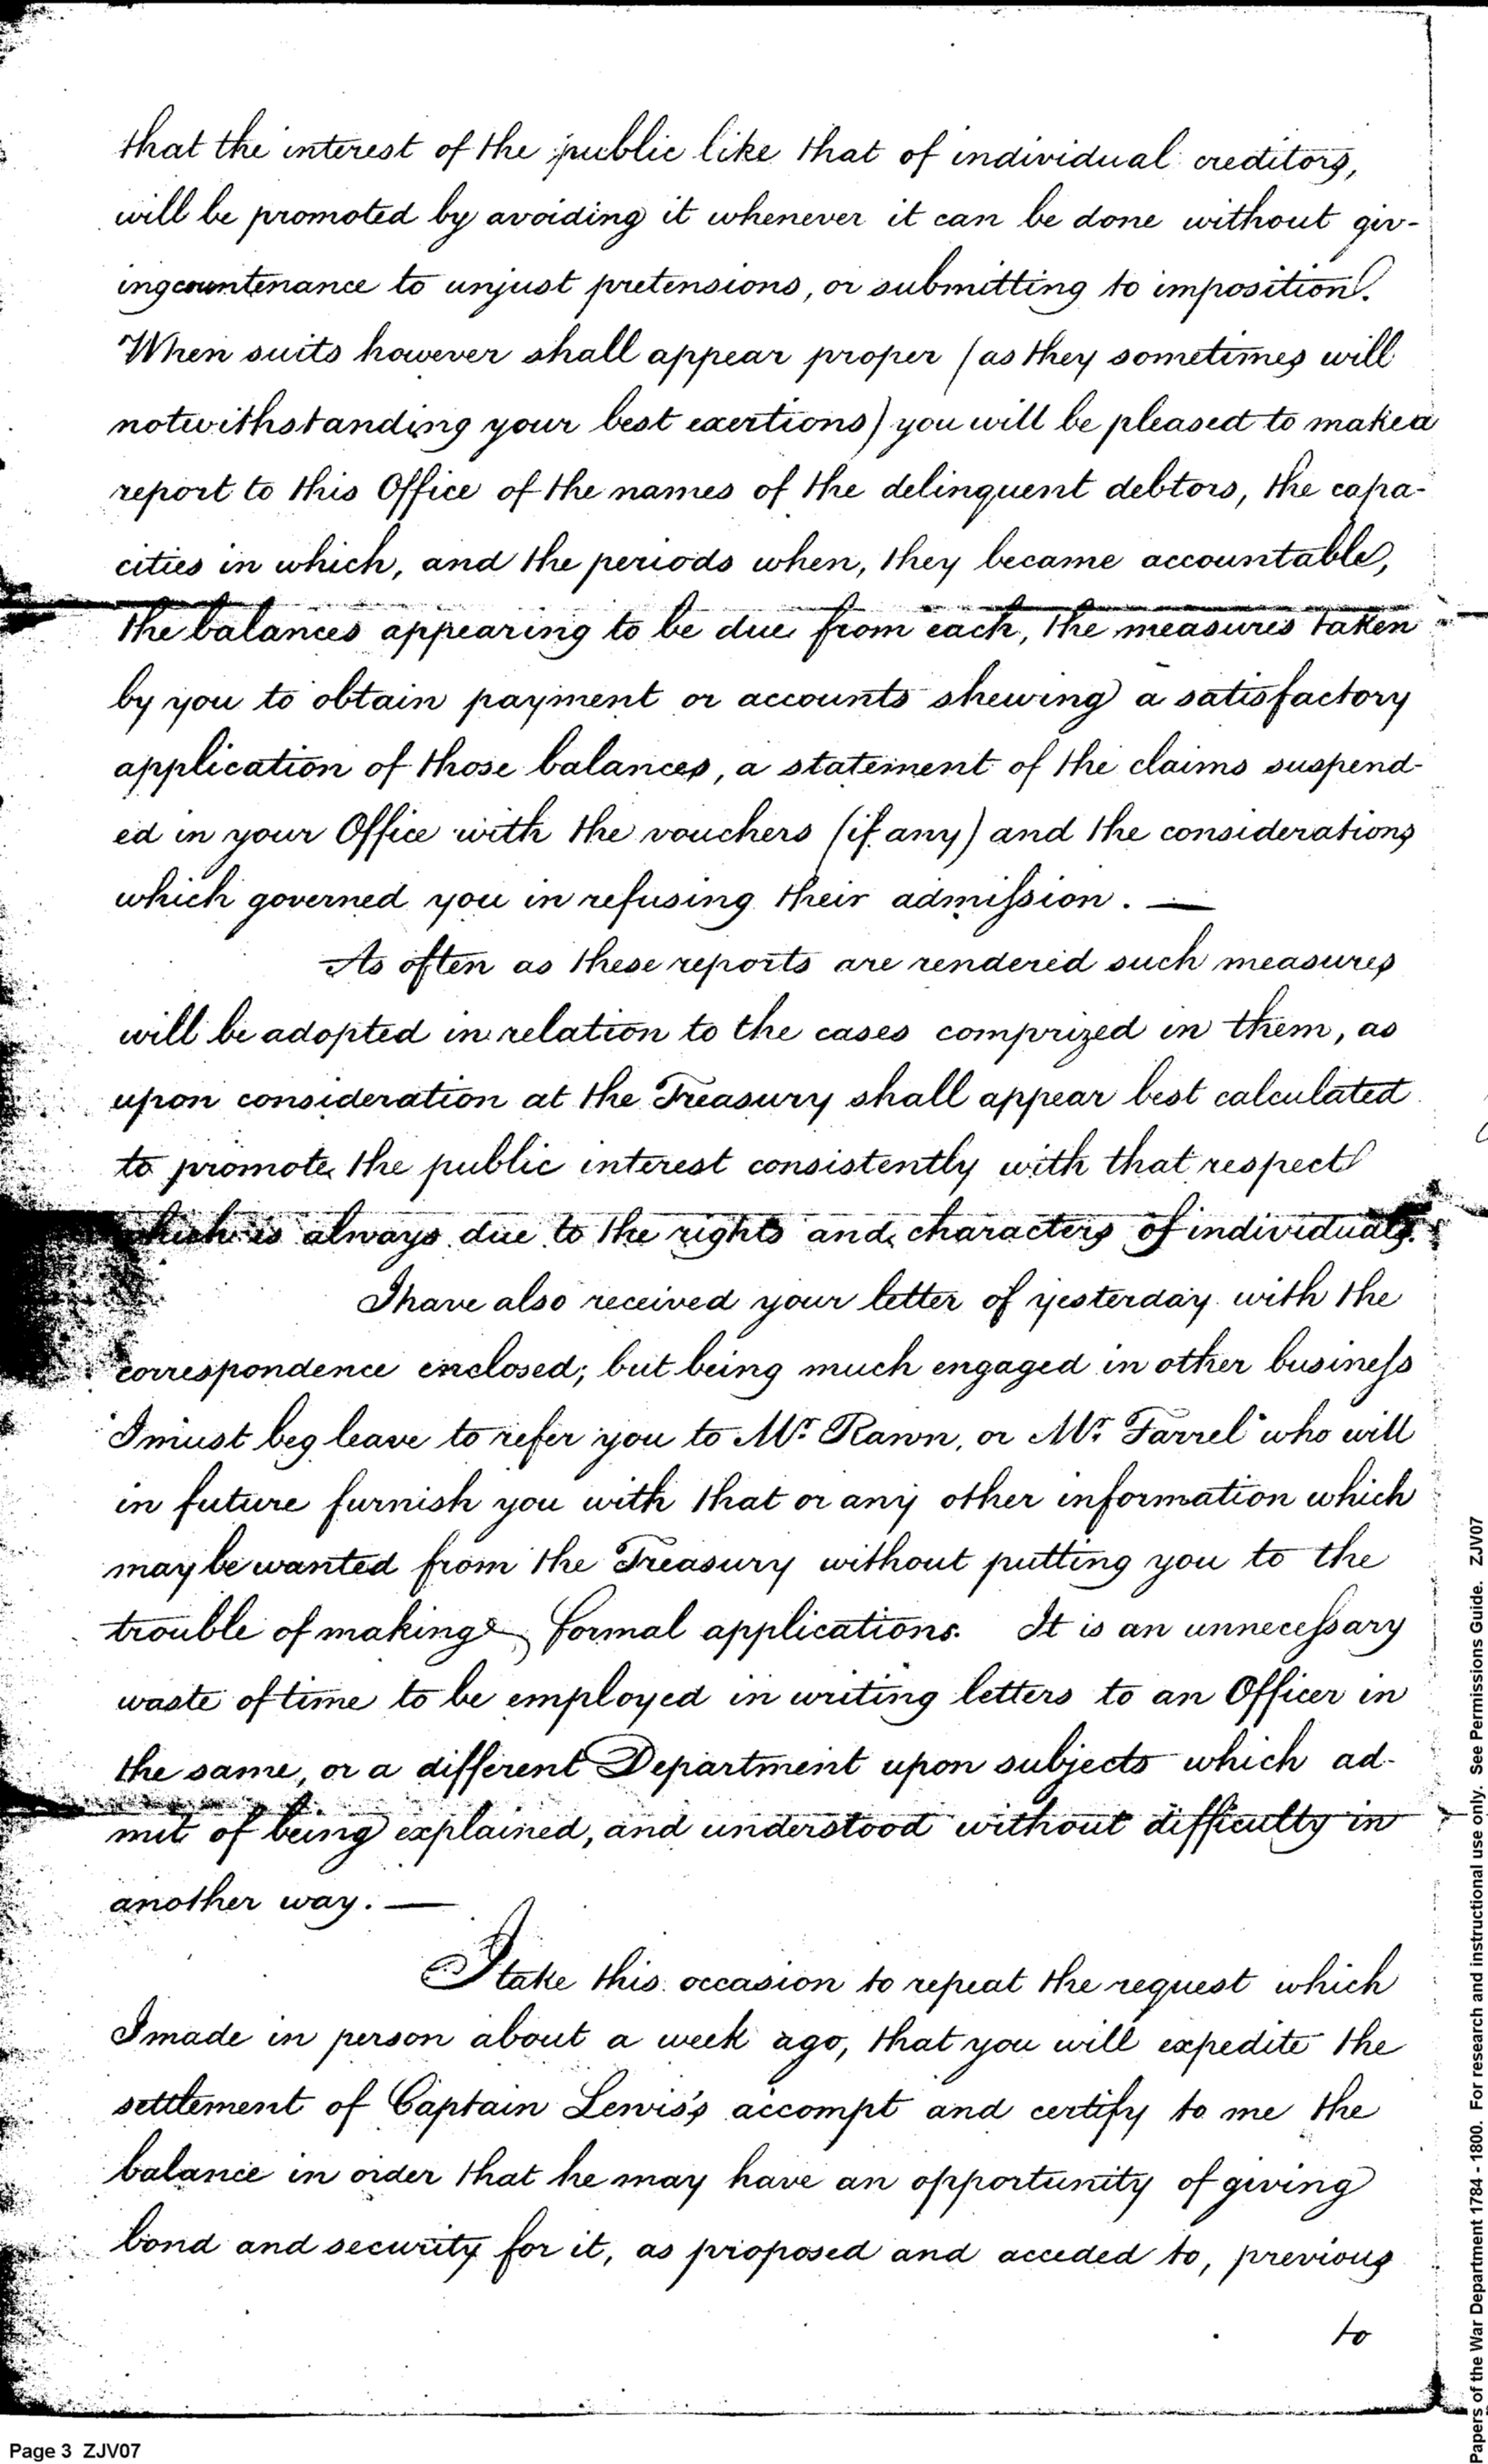 that the interest of the public like that of individual creditors,
will be promoted by avoiding it whenever it can be done without giv-
ing countenance to unjust pretensions, or submitting to imposition.
When suits however shall appear proper (as they sometimes will
notwithstanding your best exertions) you will be pleased to make a
report to this Office of the names of the delinquent debtors, the capa-
cities in which, and the periods when, they became accountable,
the balances appearing to be due from each, the measures taken
by you to obtain payment or accounts shewing a satisfactory
application of those balances, a statement of the claims suspend-
ed in your Office with the vouchers (if any) and the considerations
which governed you in refusing their admission. —
As often as these reports are rendered such measures
will be adopted in relation to the cases comprized in them, as
upon consideration at the Treasury shall appear best calculated
to promote the public interest consistently with that respect
which is always due to the rights and characters of individuals.
I have also received your letter of yesterday with the
correspondence enclosed; but being much engaged in other business
I must beg leave to refer you to Mr. Rawn, or Mr. Farrel who will
in future furnish you with that or any other information which
may be wanted from the Treasury without putting you to the
trouble of making formal applications. It is an unnecessary
waste of time to be employed in writing letters to an Officer in
the same, or a different Department upon subjects which ad-
mit of being explained, and understood without difficulty in
another way. —
I take this occasion to repeat the request which
I made in person about a week ago, that you will expedite the
settlement of Captain Lewis's accompt and certify to me the
balance in order that he may have an opportunity of giving
bond and security for it, as proposed and acceded to, previous
to
Page 3 ZJV07
Papers of the War Department 1784 - 1800. For research and instructional use only. See Permissions Guide. ZJV07